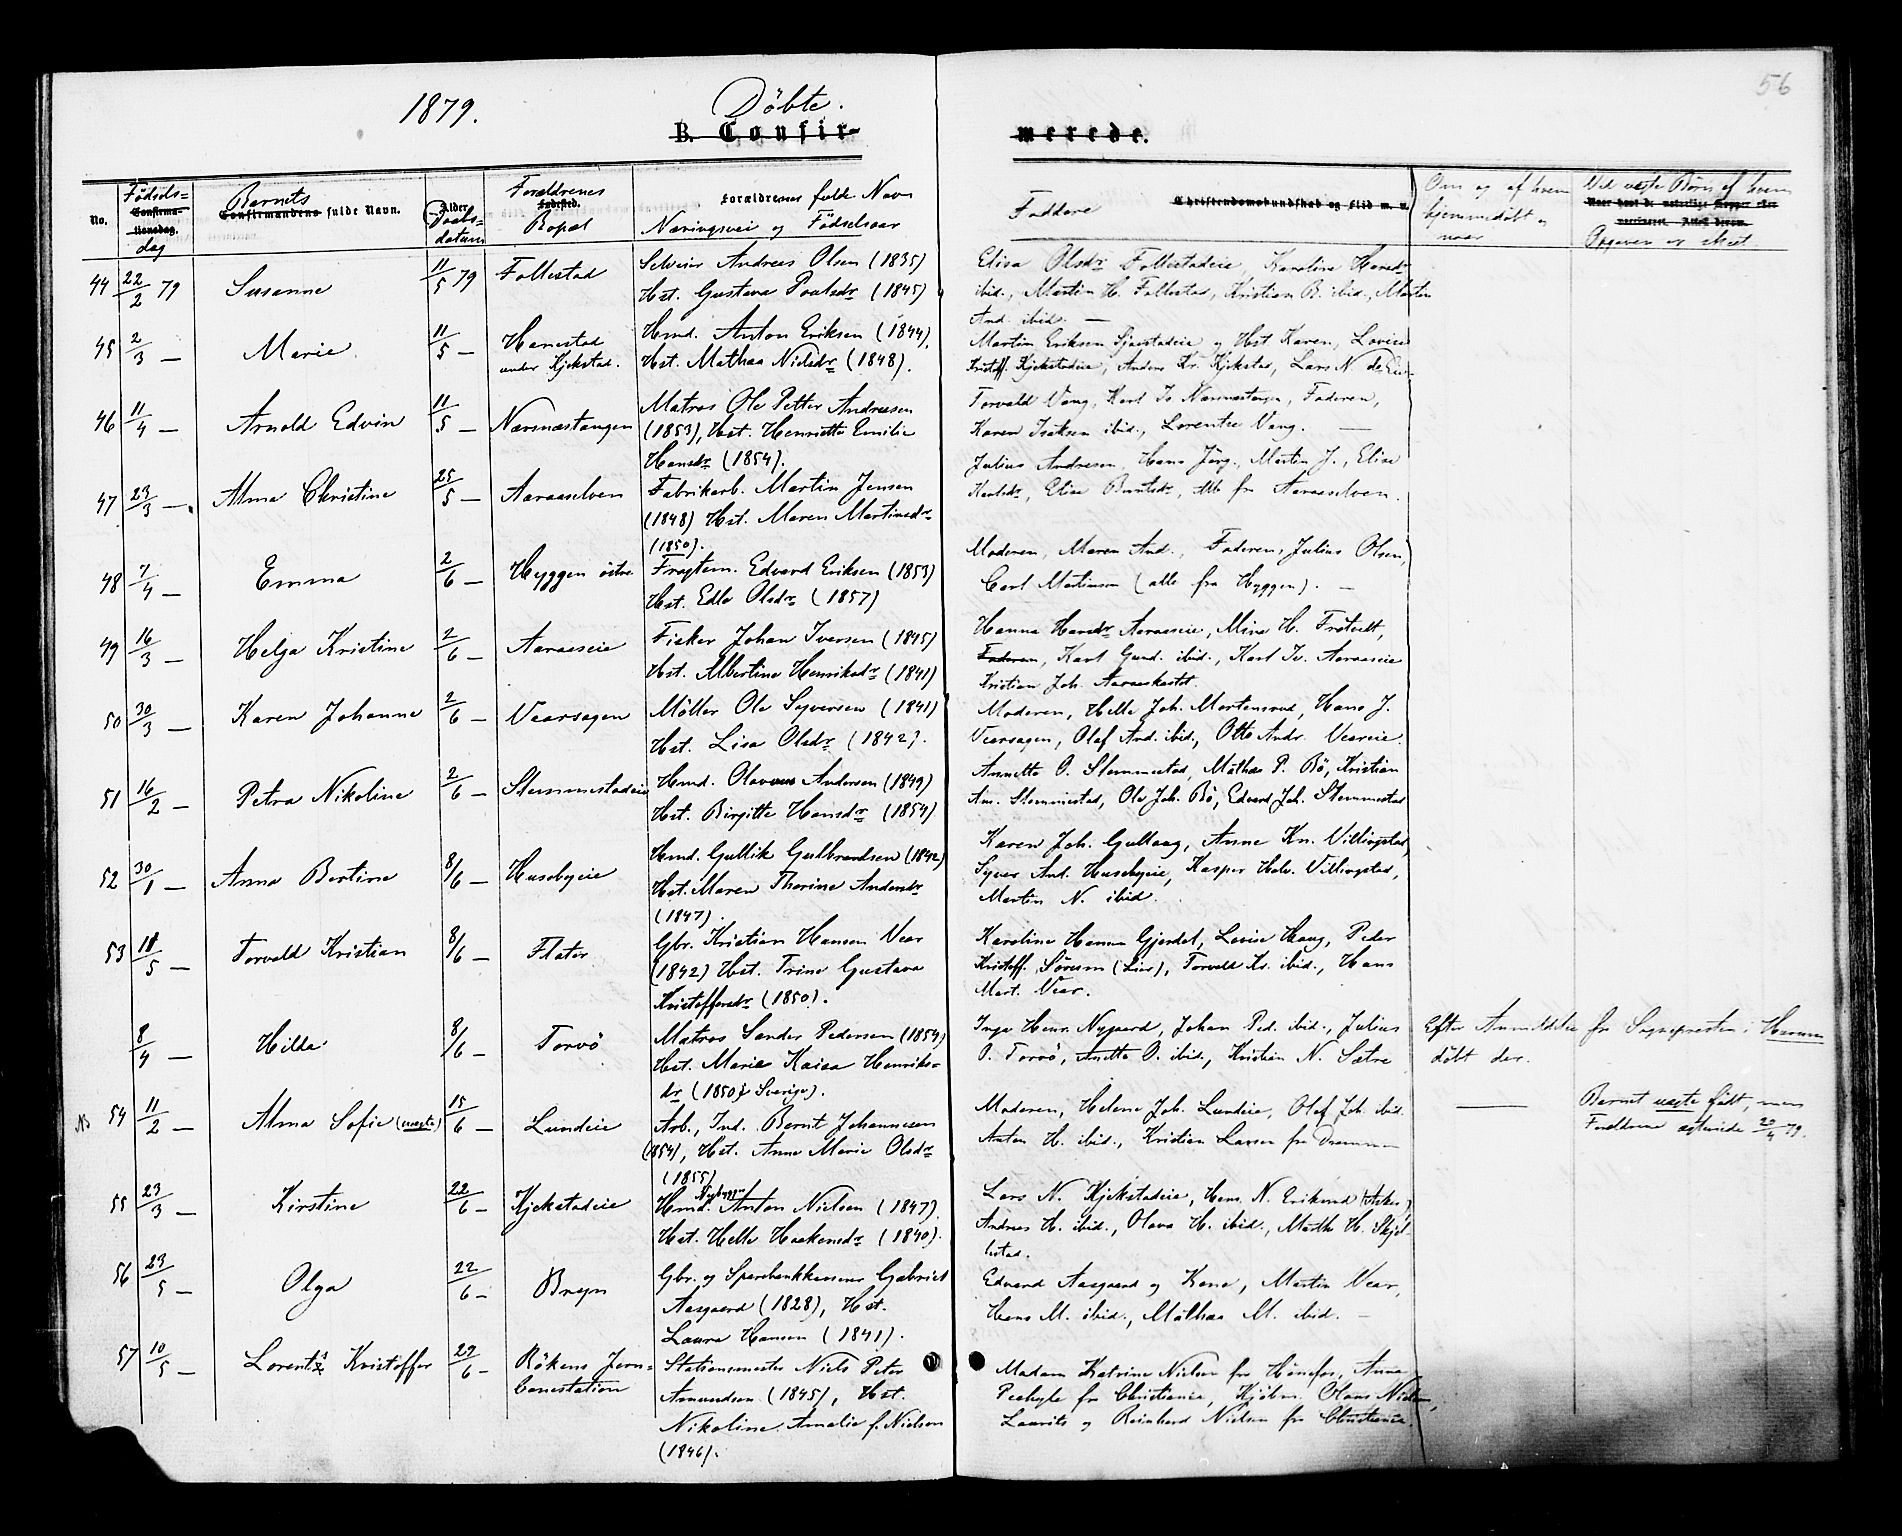 56
1879.
Döbte.
B. Confir-
merede.
No.
Fødsels-
Confirma-
tionsdag.
dag
Barnets
Confirmandens fulde Navn.
Alder
Daabs-
datum
Forældrenes
Fødested.
Bopæl
Forældrenes fulde Navn
Næringsvei og Fødselsaar
Faddere
Christendomskundskab og Flid m. v.
Om og af hvem
hjemmedöbt og
naar
Ved uægte Børn af hvem
Naar havt de naturlige Kopper eller
vaccineret. Attest derom.
Opgaven er skeet
44 22/2 79 Susanne 11/5 79 Follestad
Selveier Andreas Olsen (1835)
Hst. Gustava Paulsdr (1845)
Elisa Olsdr Follestadeie, Karoline Hansdr
ibid., Martin H. Follestad, Kristian B. ibid., Martin
And. ibid. —
45 2/3 — Marie 11/5 — Hanestad
under Kjekstad.
Hmd. Anton Eriksen (1844),
Hst. Mathea Nielsdr (1848).
Martin Eriksen Gjerstadeie og Hst Karen, Lovise
Kristoff. Kjekstadeie, Anders Kr. Kjekstad, Lars N.
46 11/4 — Arnold Edvin 11/5 — Nærsnæstangen
Matros Ole Petter Andreasen
(1853), Hst. Henriette Emilie
Hansdr (1854).
Torvald Vang, Karl Is. Nærsnæstangen, Faderen,
Karen Isaksen ibid., Lorentse Vang. —
47 23/3 — Alma Christine 25/5 — Aaraaselven
Fabrikarb. Martin Jensen
(1848) Hst. Maren Martinsdr
(1850).
Julius Andresen, Hans Jörg., Martin J., Elise
Karlsdr, Elise Berntsdr, Alle fr Aaraaselven.
48 7/4 — Emma 2/6 — Hyggen östre
Fragtem. Edvard Eriksen (1853)
Hst. Edle Olsdr (1857)
Moderen, Maren And., Faderen, Julius Olsen,
Carl Martinsen (alle fra Hyggen). —
49 16/3 — Helga Kristine 2/6 — Aaraaseie
Fisker Johan Iversen (1845)
Hst. Albertine Henriksdr (1841)
Hanna Hansdr Aaraaseie, Mina H. Frötvedt,
Faderen, Karl Gund. ibid., Karl Iv. Aaraaseie
Kristian Joh. Aaraaskastet.
50 30/3 — Karen Johanne 2/6 — Vearsagen
Möller Ole Syversen (1841)
Hst. Lisa Olsdr (1842).
Moderen, Helle Joh. Mortensrud, Hans J.
Vearsagen, Olaf And. ibid., Otto Andr. Veareie.
51 16/2 — Petra Nikoline 2/6 — Slemmestadeie
Hmd. Olavus Andersen (1849)
Hst. Birgitte Hansdr (1854)
Annette O. Slemmestad, Mathea P. Bö, Kristian
An. Slemmestad, Ole Joh. Bö, Edvard Joh. Slemmestad
52 30/1 — Anna Bertine 8/6 — Husebyeie
Hmd. Gullik Gulbrandsen (1842)
Hst. Maren Thorine Andersdr
(1847).
Karen Joh. Gullaug, Anne Kn. Villingstad,
Syver And. Husebyeie, Kasper Halv. Villingstad,
Martin N. ibid.
53 11/5 — Torvald Kristian 8/6 — Flater
Gbr. Kristian Hansen Vear
(1842) Hst. Trine Gustava
Kristoffersdr (1850).
Karoline Hanna Gjerdal, Lovise Haug, Peder
Kristoff. Sörum (Lier), Torvald Kr. ibid., Hans
Mart. Vear.
8/4 — Hilda 8/6 — Torvö
Matros Sander Pedersen (1854)
Hst. Marie Kaisa Henriks-
dr (1850 i Sverige).
Inga Henr. Nygaard, Johan Ped. ibid., Julius
O. Torvö, Anette O. ibid., Kristian N. Sætre
Efter Anmeldelse fr Sognepresten i Hurum
döbt der.
NB 54 11/2 — Alma Sofie (uægte) 15/6 — Lundeie
Arb., Ind. Bernt Johannesen
(1854), Hst. Anne Marie Olsdr
(1855)
Moderen, Helene Joh. Lundeie, Olaf Joh. ibid.
Anton H. ibid., Kristian Larsen fr Drammen
—
Barnet uægte födt, men
Forældrene ægteviede 20/4 79.
55 23/3 — Kirstine 22/6 — Kjekstadeie
Hmd. Anton Nielsen (1847).
Hst. Helle Haakensdr (1840).
Lars N. Kjekstadeie, Hans N. Eriksrud (Asker)
Andreas H. ibid., Olava H. ibid., Marthe H. Skjel-
lestad.
56 23/5 — Olga 22/6 — Bryn
Gbr. og Sparebankkasserer Gabriel
Aasgaard (1828), Hst.
Laura Hansen (1841).
Edvard Aasgaard og Kone, Martin Vear,
Hans M. ibid., Mathea M. ibid. —
57 10/5 — Lorents Kristoffer 29/6 — Rökens Jern-
banestation
Stationsmester Niels Peter
Amundsen (1845), Hst.
Nikoline Amalie f. Nielsen
(1846).
Madam Katrine Nielsen fr Hönefos, Anna
fr Christiania, Kjöbm. Olaus Nielsen,
Laurits og Reinhard Nielsen fr Christiania.